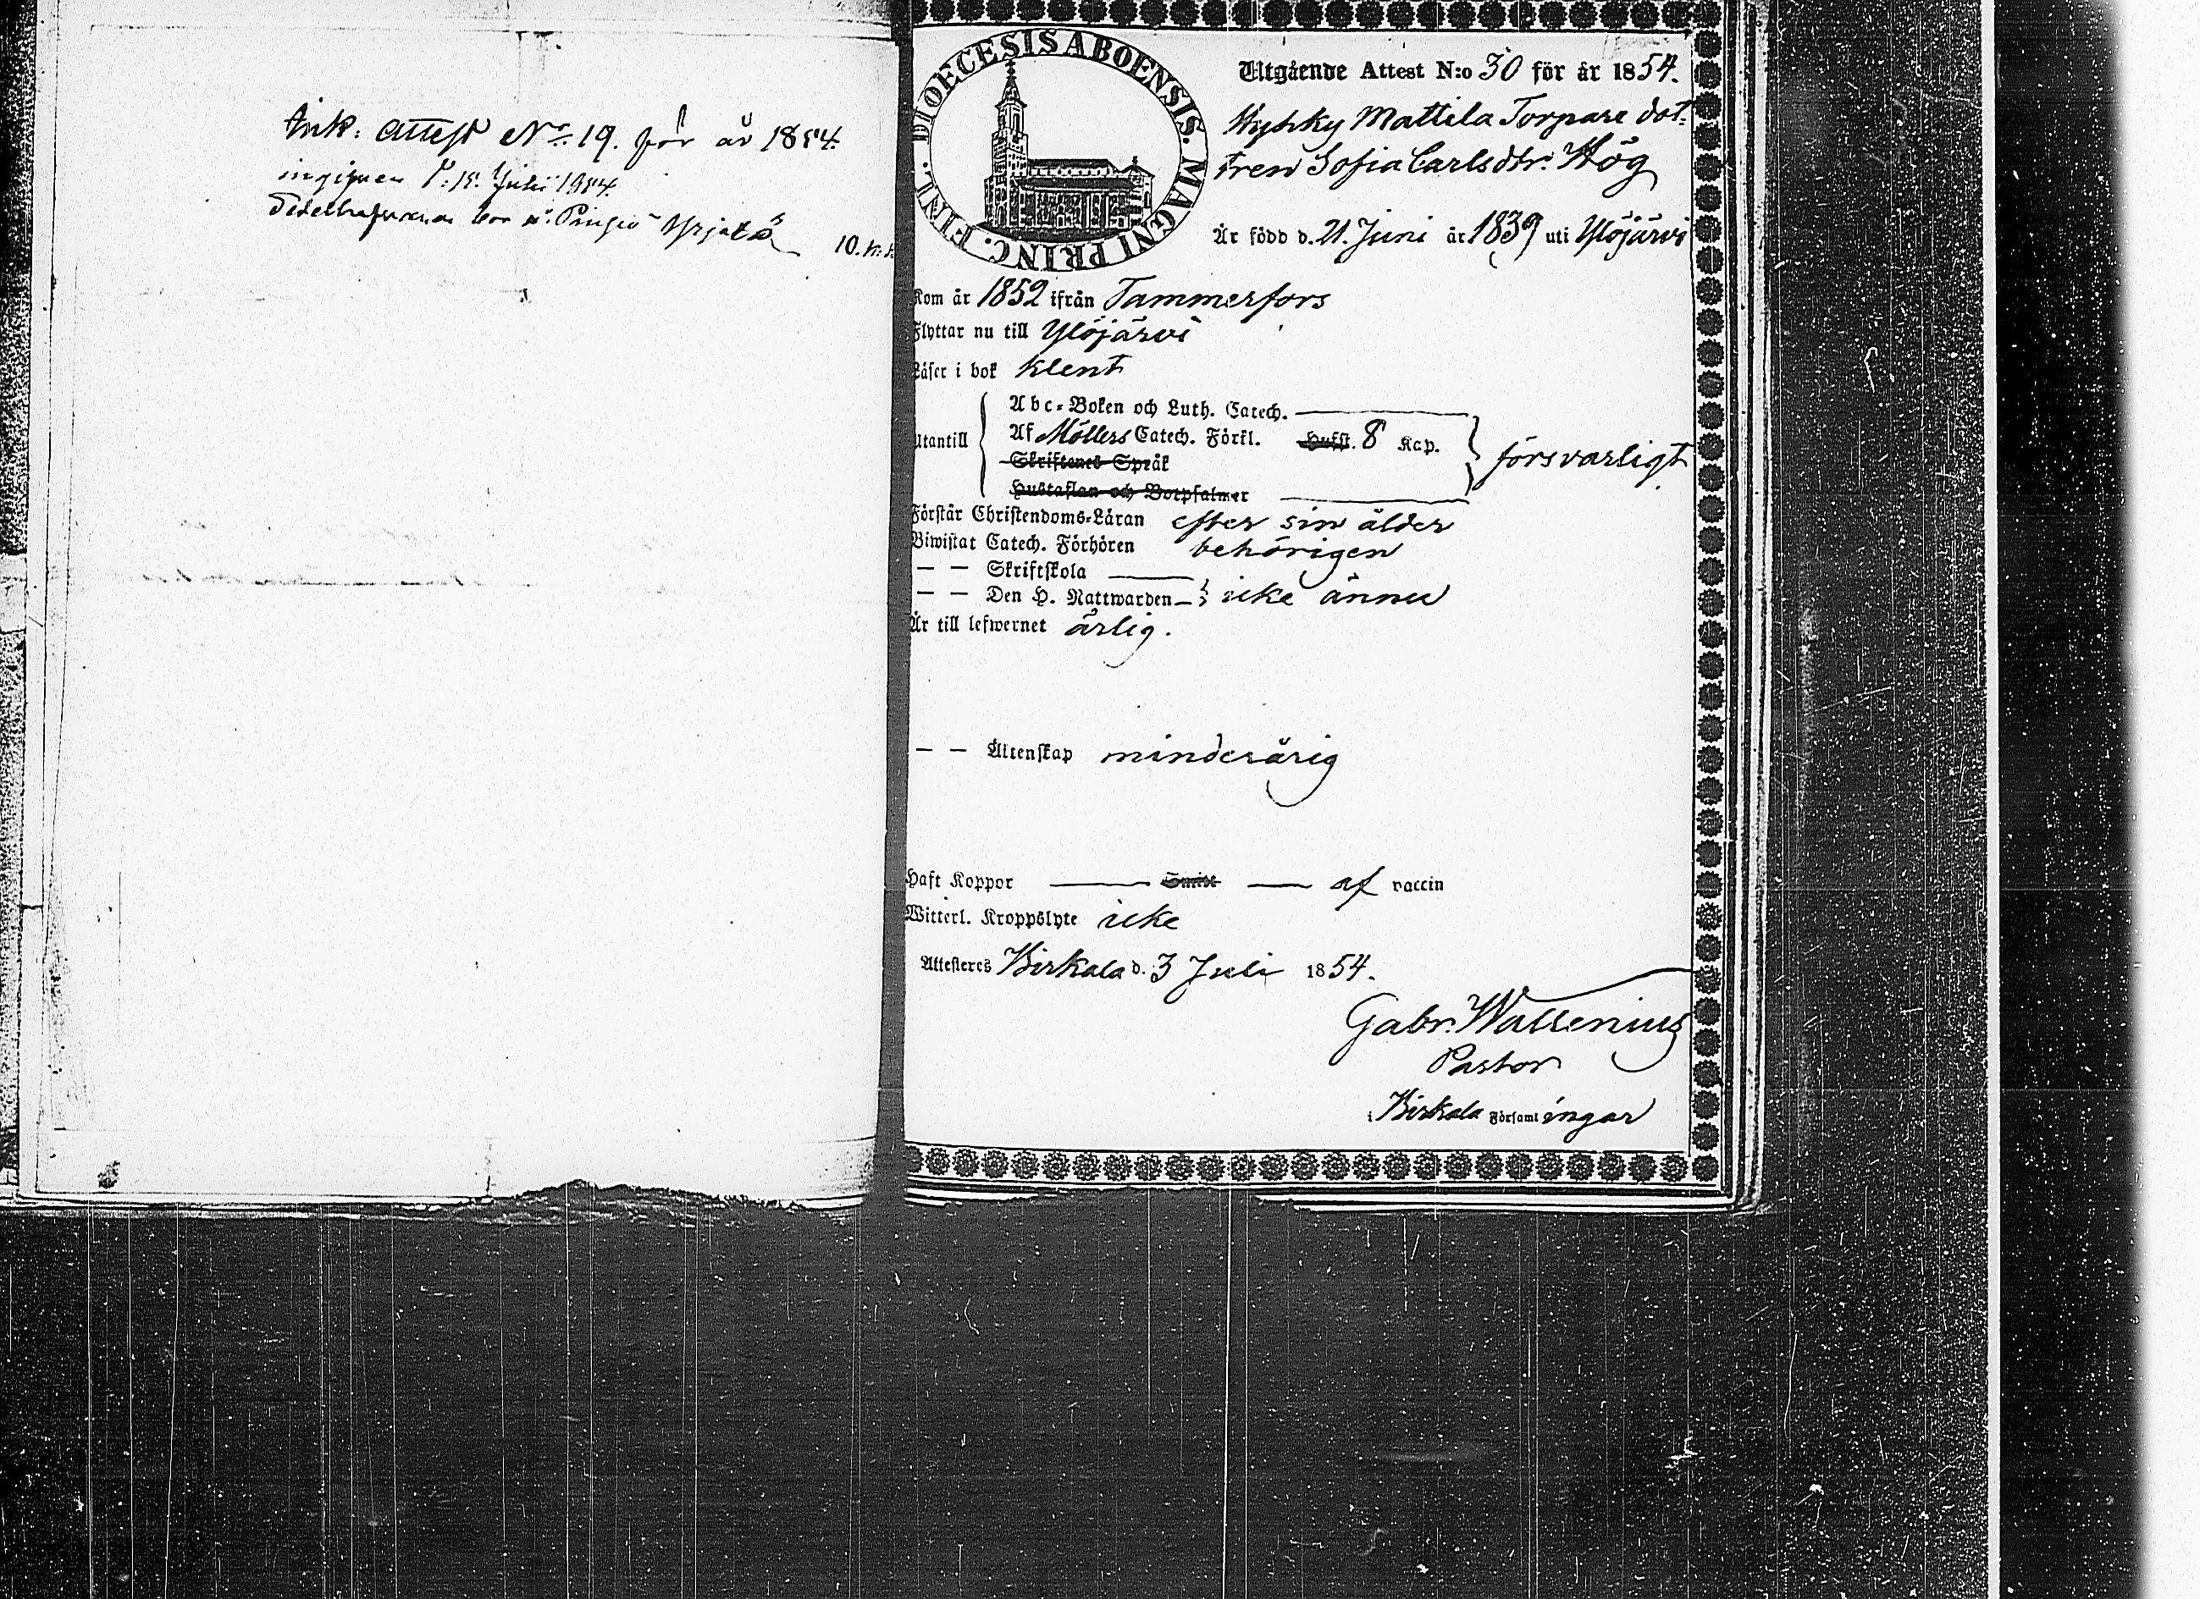 Ink: Attest No: 19. för år 1854.
ingifven d: 15. Juli 1854.
10. k. s.
DIOECESIS ABOENSIS. MAGNI PRINC. FINL.
Utgående Attest N:o 30 för år 1854.
Mattila Torpare dot.
tren Sofia Carlsdtr. Hög
Är född d. 21. Juni år 1839 uti Ylöjärvi
Kom år 1852 ifrån Tammerfors
Flyttar nu till Ylöjärvi
Läser i bok klent
Utantill
Abc-Boken och Luth. Catech.
Af Möllers Catech. Förkl. Hufst. 8 Kap.
Skriftenes Språk
Hustaflan och Botpsalmer
försvarligt
Förstår Christendoms-Läran efter sin ålder
Biwistat Catech. Förhören behörigen
— — Skriftskola
— — Den H. Nattwarden icke ännu
Är till lefwernet ärlig.
— — Äktenskap minderårig
Haft Koppor af vaccin
Witterl. Kroppslyte icke
Attesteras Birkala d. 3 Juli 1854.
Gabr. Wallenius
Pastor
i Birkala Församlingar